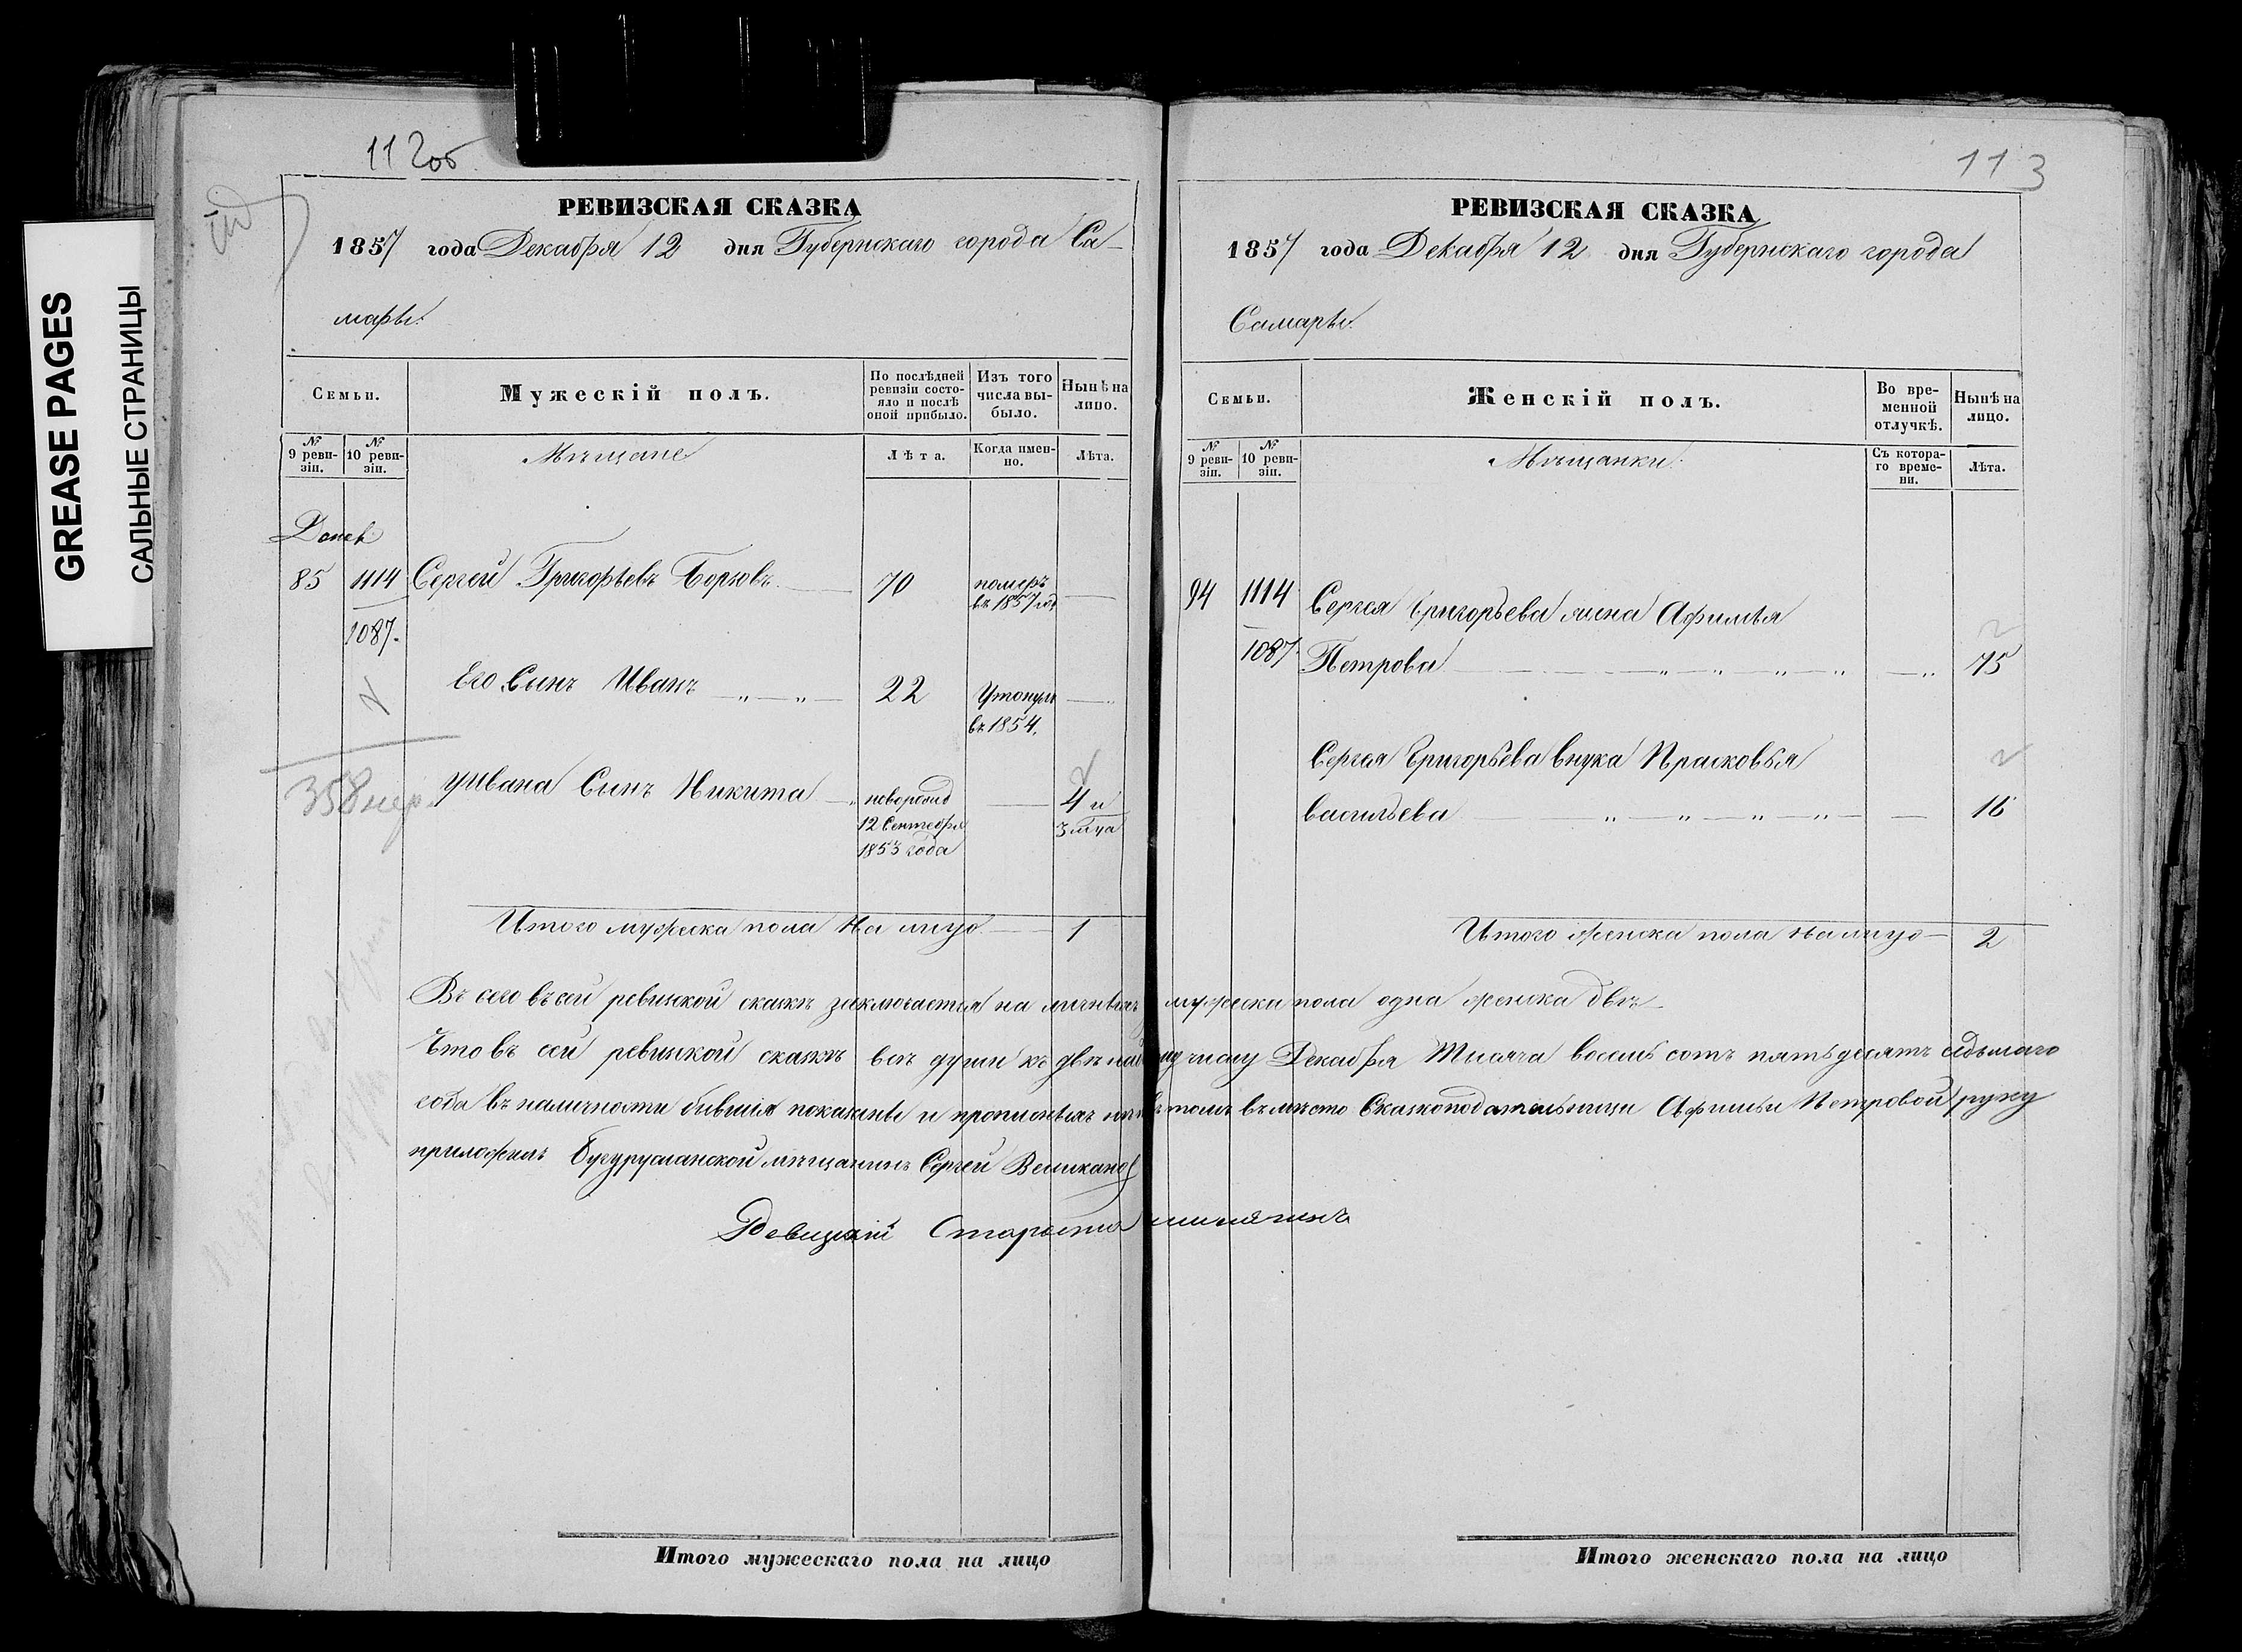 GREASE PAGES
САЛЬНЫЕ СТРАНИЦЫ
112об
РЕВИЗСКАЯ СКАЗКА
1857 года Декабря 12 дня Губернскаго города Са-
мары.
Семьи.
Мужескій полъ.
По послѣдней ревизіи состо-
яло и послѣ
оной прибыло.
Изъ того
числа вы-
было.
Нынѣ на
лицо.
№
9 реви-
зіи.
№
10 реви-
зіи.
Мѣщане
Лѣта.
Когда имен-
но.
Лѣта.
85 1114 Сергей Григорьевъ 70 померъ
въ 1857 год
1087.
Его Сынъ Иванъ 22 Утонулъ
въ 1854.
У Ивана Сынъ Никита новорожд 4 и
12 Сентебря 3 м-ца
1853 года
358 нер.
Итого мужеска пола На лицо 1
113
РЕВИЗСКАЯ СКАЗКА
1857 года Декабря 12 дня Губернскаго города
Самары.
Семьи.
Женскій полъ.
Во вре-
менной
отлучкѣ.
Нынѣ на
лицо.
№
9 реви-
зіи.
№
10 реви-
зіи.
Мѣщанки.
Съ котора-
го време-
ни.
Лѣта.
94 1114 Сергея Григорьева жена Афимья
1087. Петрова 75
Сергея Григорьева внука Прасковья
васильева 16
Итого женска пола на лицо 2
Въ сей ревиской сказкѣ заключается на мужеска пола одна женска двѣ
Что въ сей ревиской сказкѣ всѣ души къ числу Декабря Тысяча восемь сотъ пятьдесятъ седьмаго
года въ наличности бывшія показаны и въ томъ вместо Сказкоподательницы Афимьи Петровой руку
приложилъ Бугурусланской мѣщанинъ Сергей Великанов
Староста
Итого мужескаго пола на лицо
Итого женскаго пола на лицо